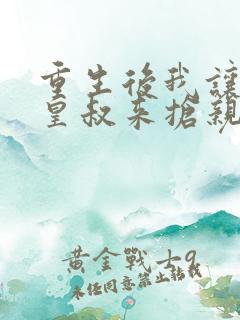 重生後我讓
皇叔來搶親
黃金戰士9
未經同意禁止轉載